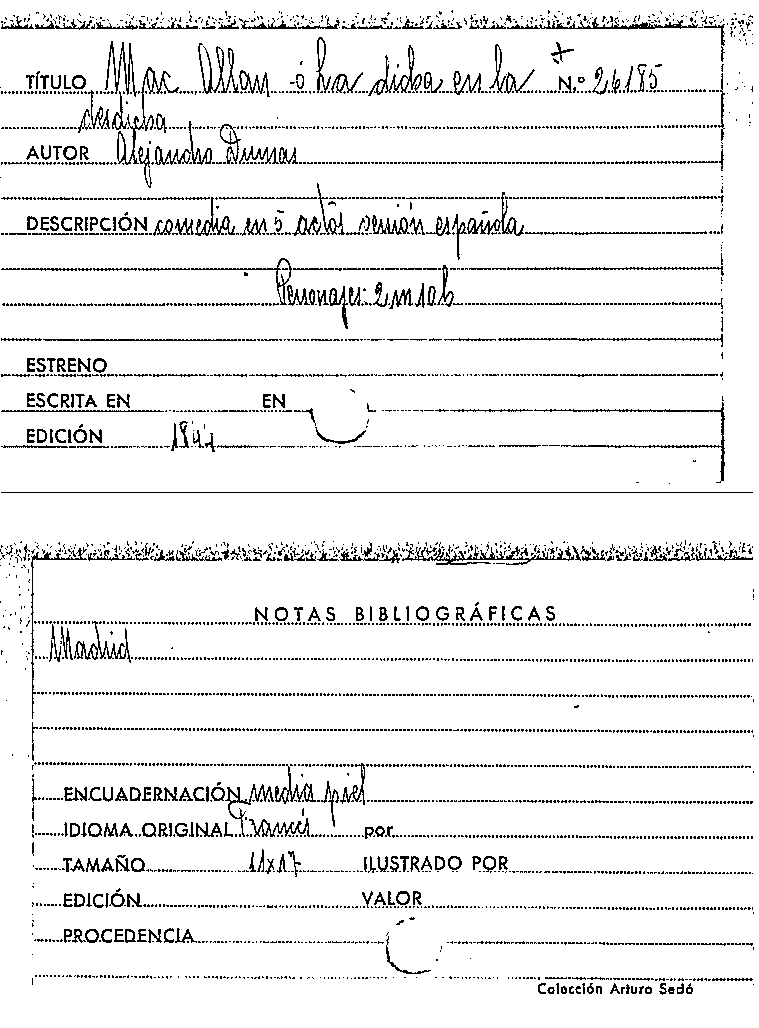 TÍTULO Mac Allan ó ha dicha en la N.º 26185
desdicha
AUTOR Alejandro Dumas
DESCRIPCIÓN comedia en 5 actos versión española
Personajes: 2 m 10 h
ESTRENO
ESCRITA EN EN
EDICIÓN 1844
NOTAS BIBLIOGRÁFICAS
Madrid
ENCUADERNACIÓN media piel
IDIOMA ORIGINAL Francés por
TAMAÑO 11x17 ILUSTRADO POR
EDICIÓN VALOR
PROCEDENCIA
Colocción Arturo Sedó